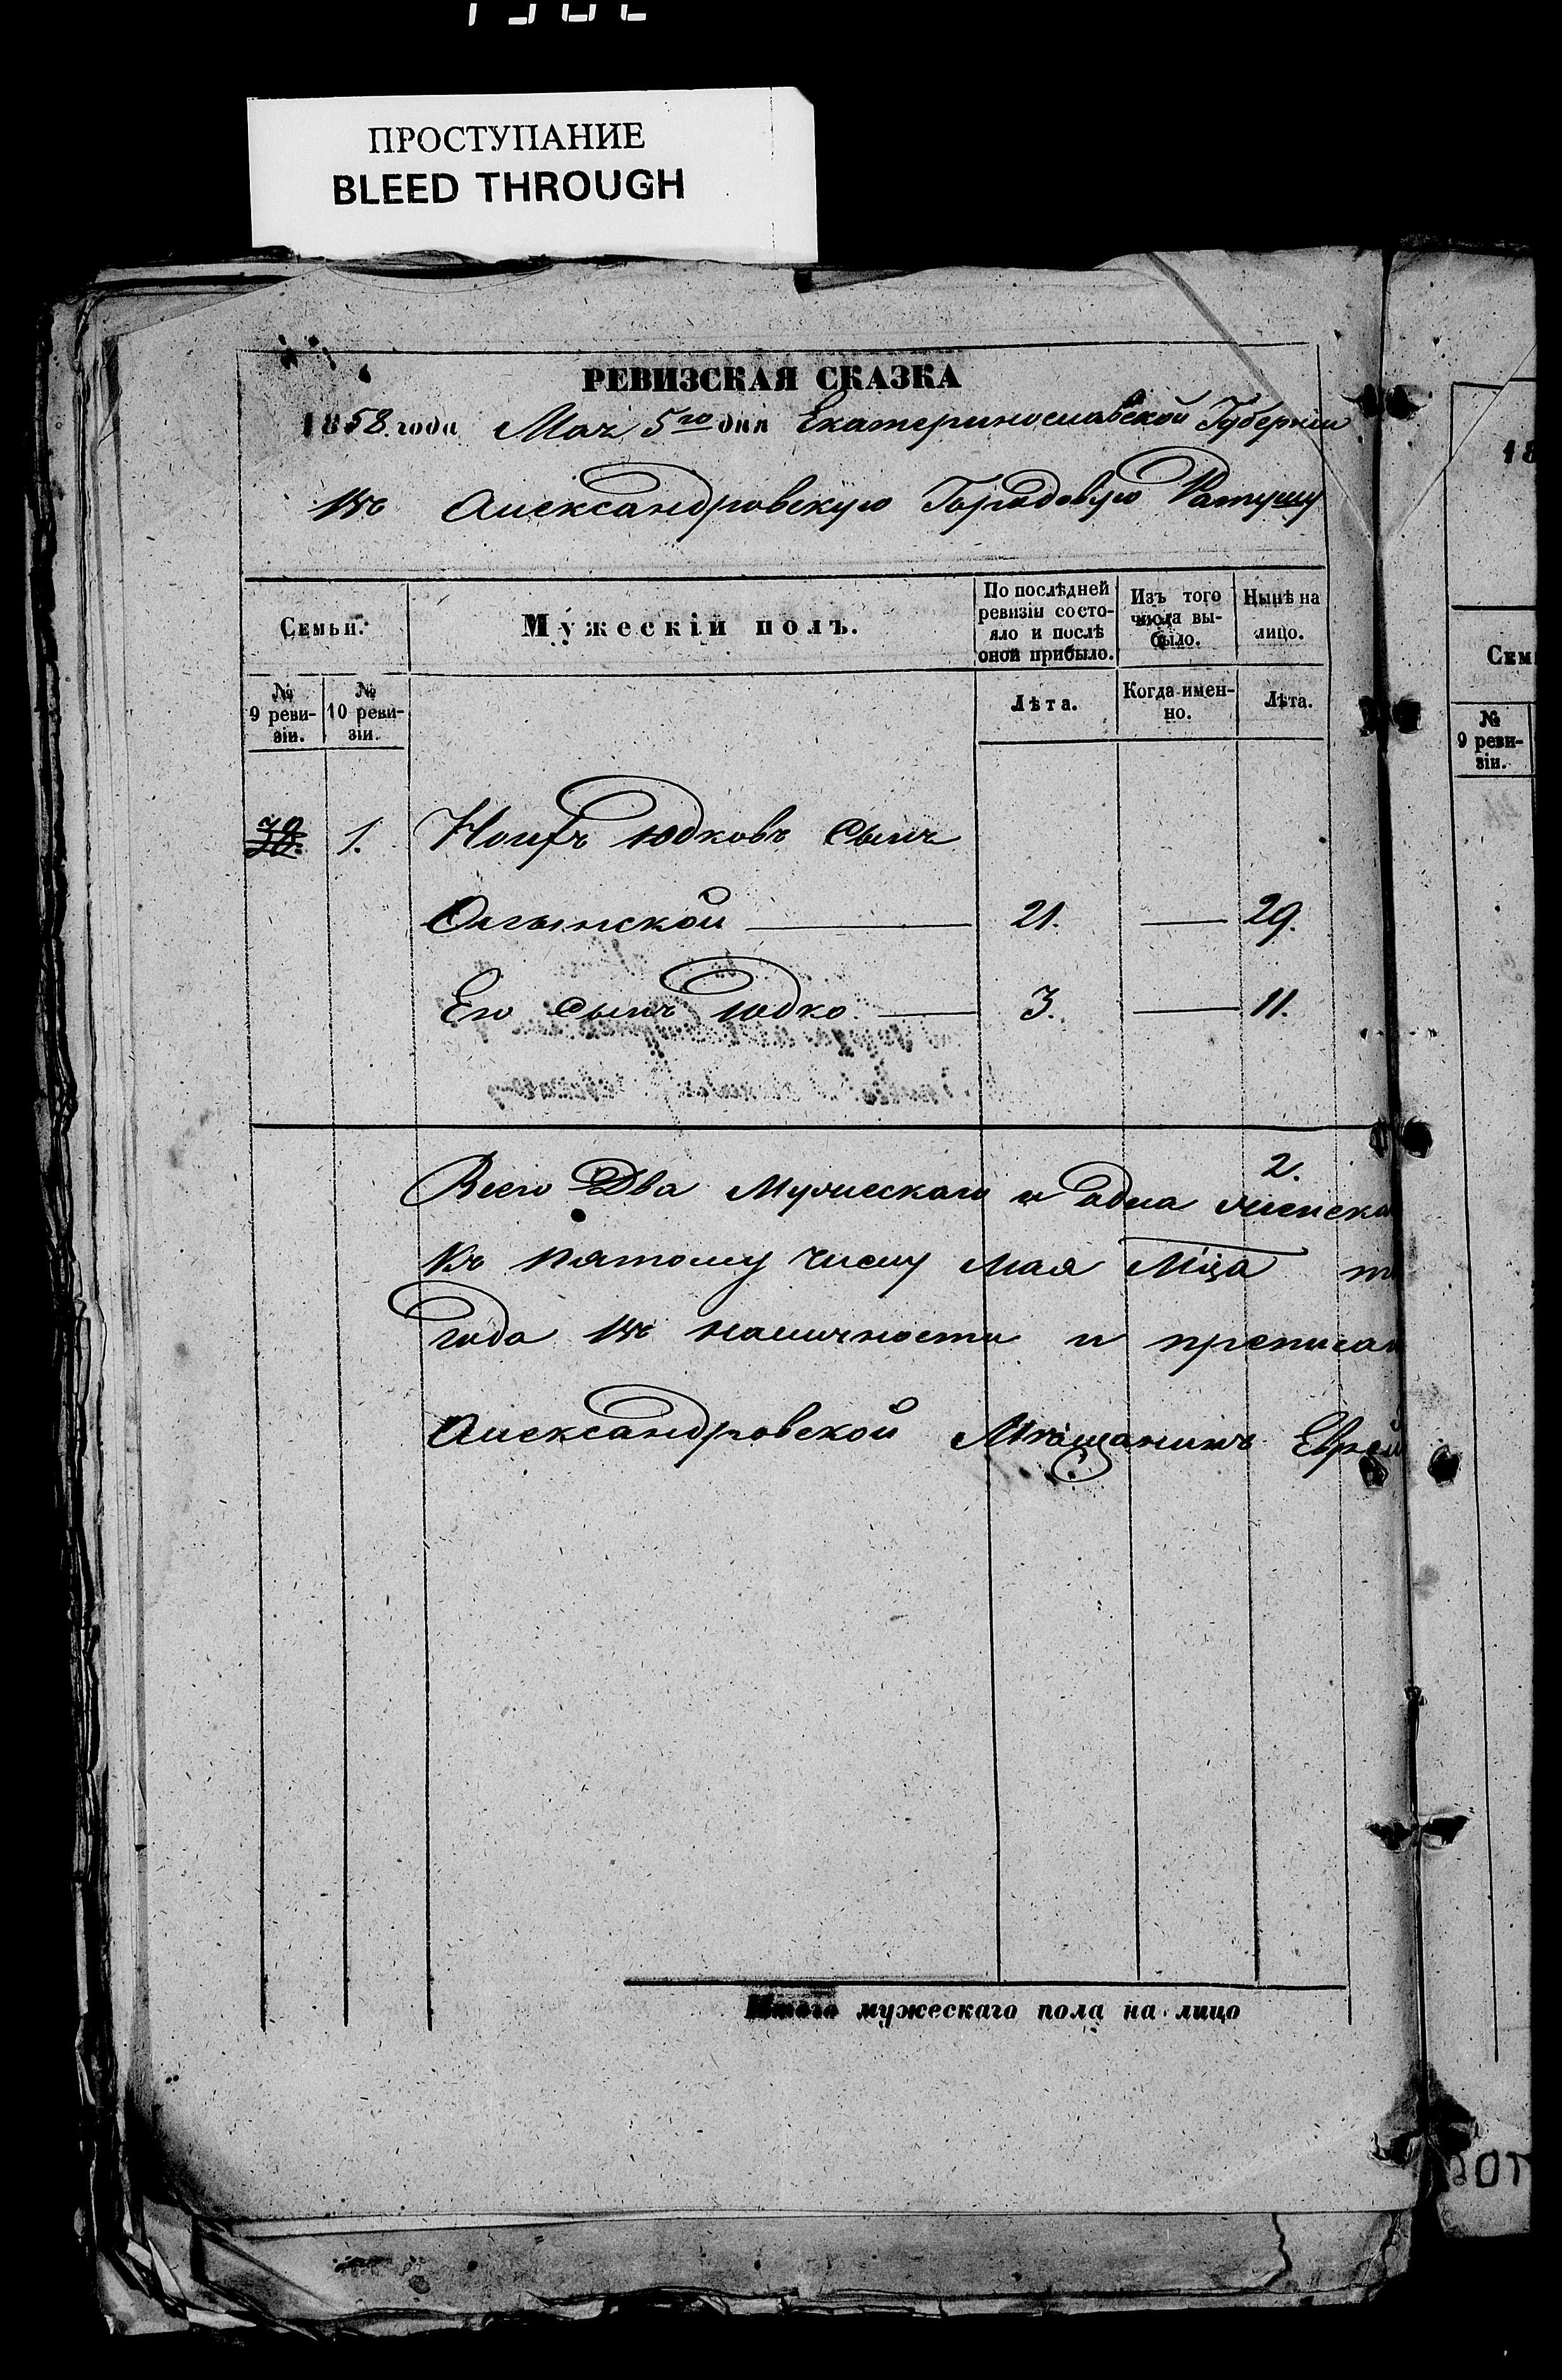 ПРОСТУПАНИЕ
BLEED THROUGH
РЕВИЗСКАЯ СКАЗКА
1858. года Мая 5го дня Екатеринославской Губерніи
Въ Александровскую Городовую Ратушу
Семьи.
Мужескій полъ.
По послѣдней ревизіи состо-
яло и послѣ оной прибыло.
Изъ того числа вы-
было.
Нынѣ на лицо.
№ 9 реви-
зіи.
№ 10 реви-
зіи.
Лѣта.
Когда имен-
но.
Лѣта.
1. Юдковъ Сынъ
21. — 29.
Его Сынъ Юдко — 3. — 11.
2.
Всего Два Мужескаго и одна женска
Къ пятому числу Мая М-ца
года въ наличности и
Александровской Мѣщанинъ Еврей
Итого мужескаго пола на лицо
18
Сем
№
9 реви-
зіи.